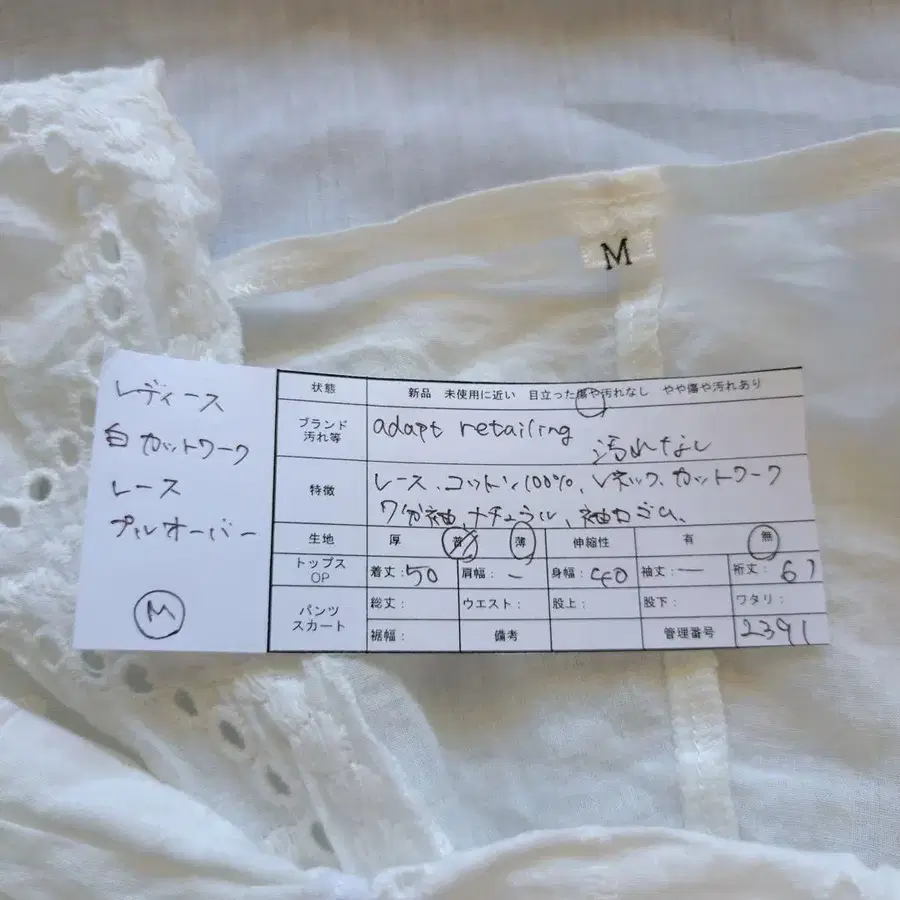 M
レディース
白 カットワーク
レース
プルオーバー
M
状態 新品 未使用に近い 目立った傷や汚れなし やや傷や汚れあり
ブランド 汚れ等 adapt retailing 汚れなし
特徴 レース、コットン100%、Vネック、カットワーク
7分袖、ナチュラル、袖口ゴム、
生地 厚 普 薄 伸縮性 有 無
トップス OP 着丈:50 肩幅:ー 身幅:40 袖丈:ー 裄丈:
パンツ スカート 総丈: ウエスト: 股上: 股下: ワタリ:
裾幅: 備考 管理番号 2391